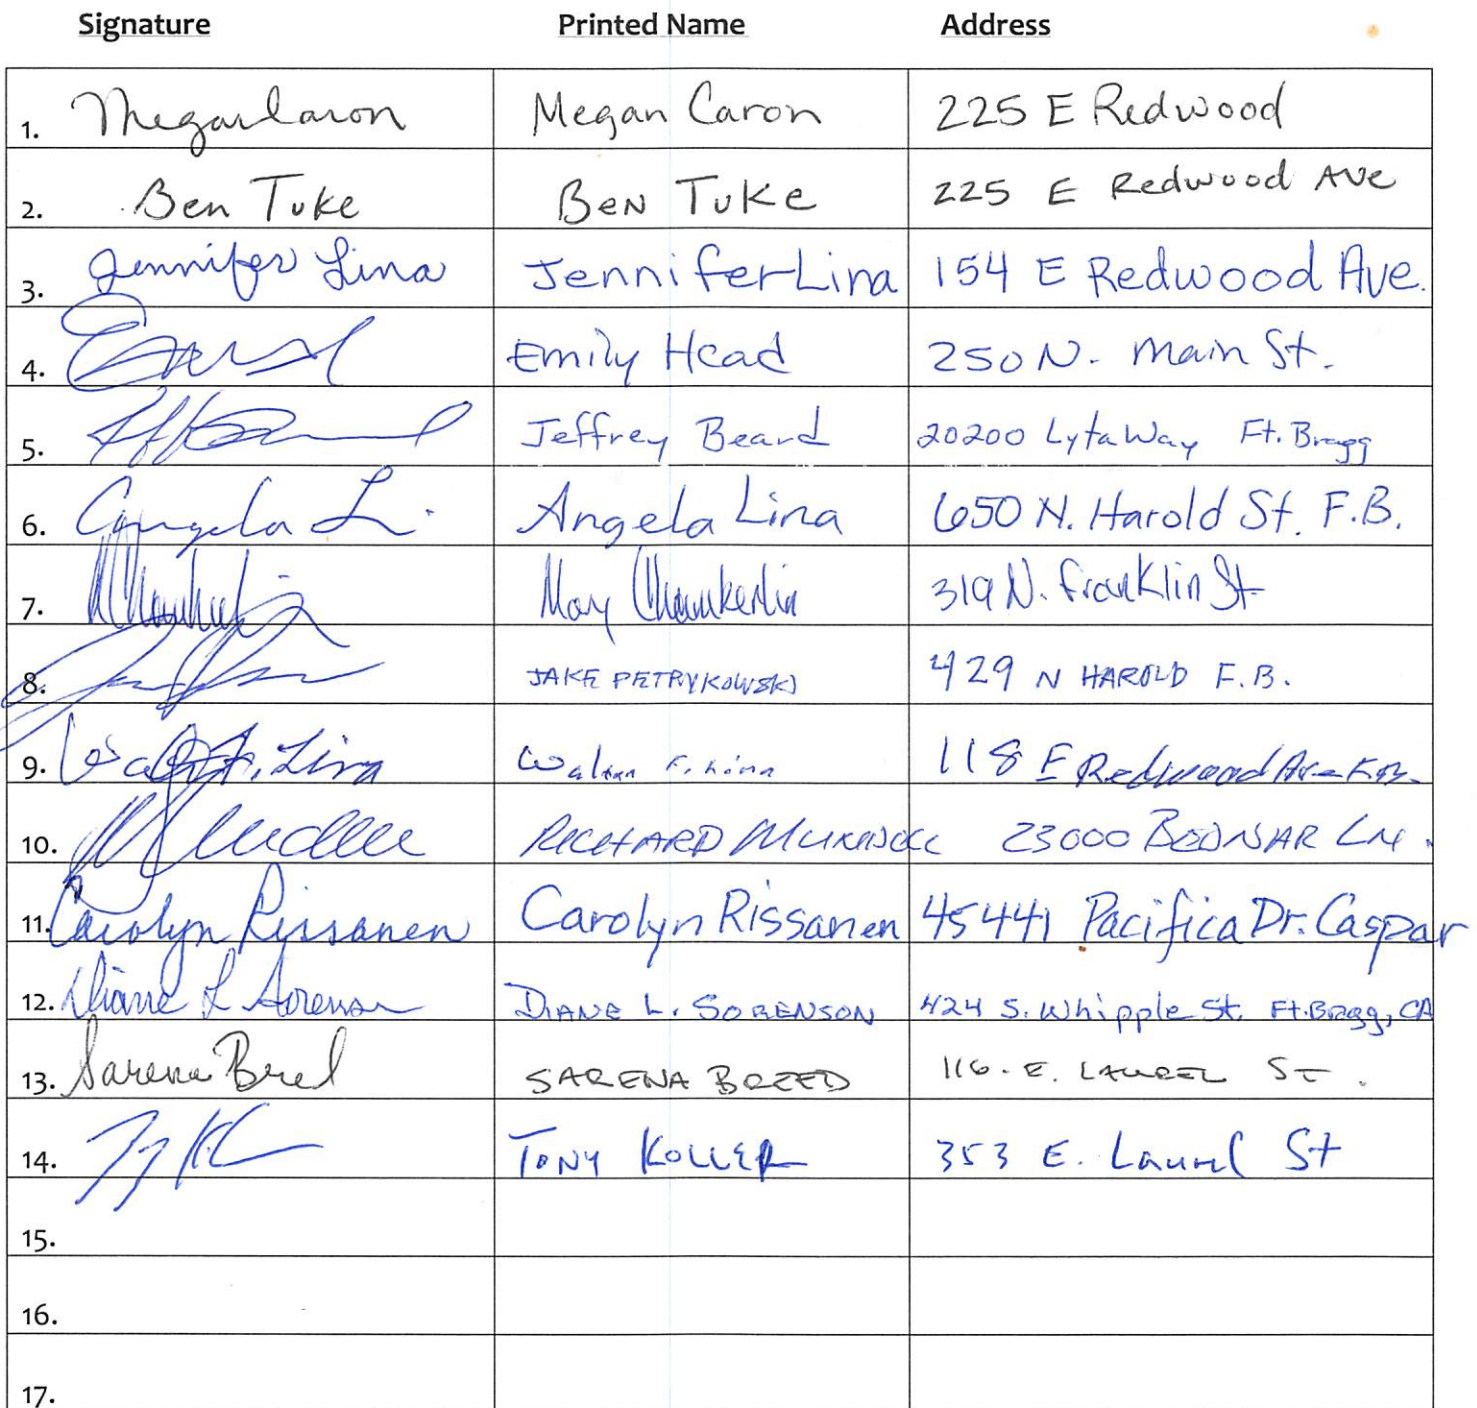 Signature Printed Name Address
1. Megan Caron Megan Caron 225 E Redwood
2. Ben Tuke Ben Tuke 225 E Redwood Ave
3. Jennifer Lina Jennifer Lina 154 E Redwood Ave.
4. Emily Head 250 N. Main St.
5. Jeffrey Beard 20200 Lyta Way Ft. Bragg
6. Angela L. Angela Lina 650 N. Harold St. F.B.
7. Mary Chamberlin 319 N. Franklin St
8. JAKE PETRYKOWSKI 429 N HAROLD F.B.
9. Lina F. Lina 118 E Redwood Ave F.B.
10. RICHARD 23000 BEDNAR LN.
11. Carolyn Rissanen Carolyn Rissanen 45441 Pacifica Dr. Caspar
12. Diane L Sorenson DIANE L. SORENSON 424 S. Whipple St. Ft. Bragg, CA
13. Sarena Breed SARENA BREED 116. E. LAUREL ST.
14. TONY KOLLER 353 E. Laurel St
15.
16.
17.